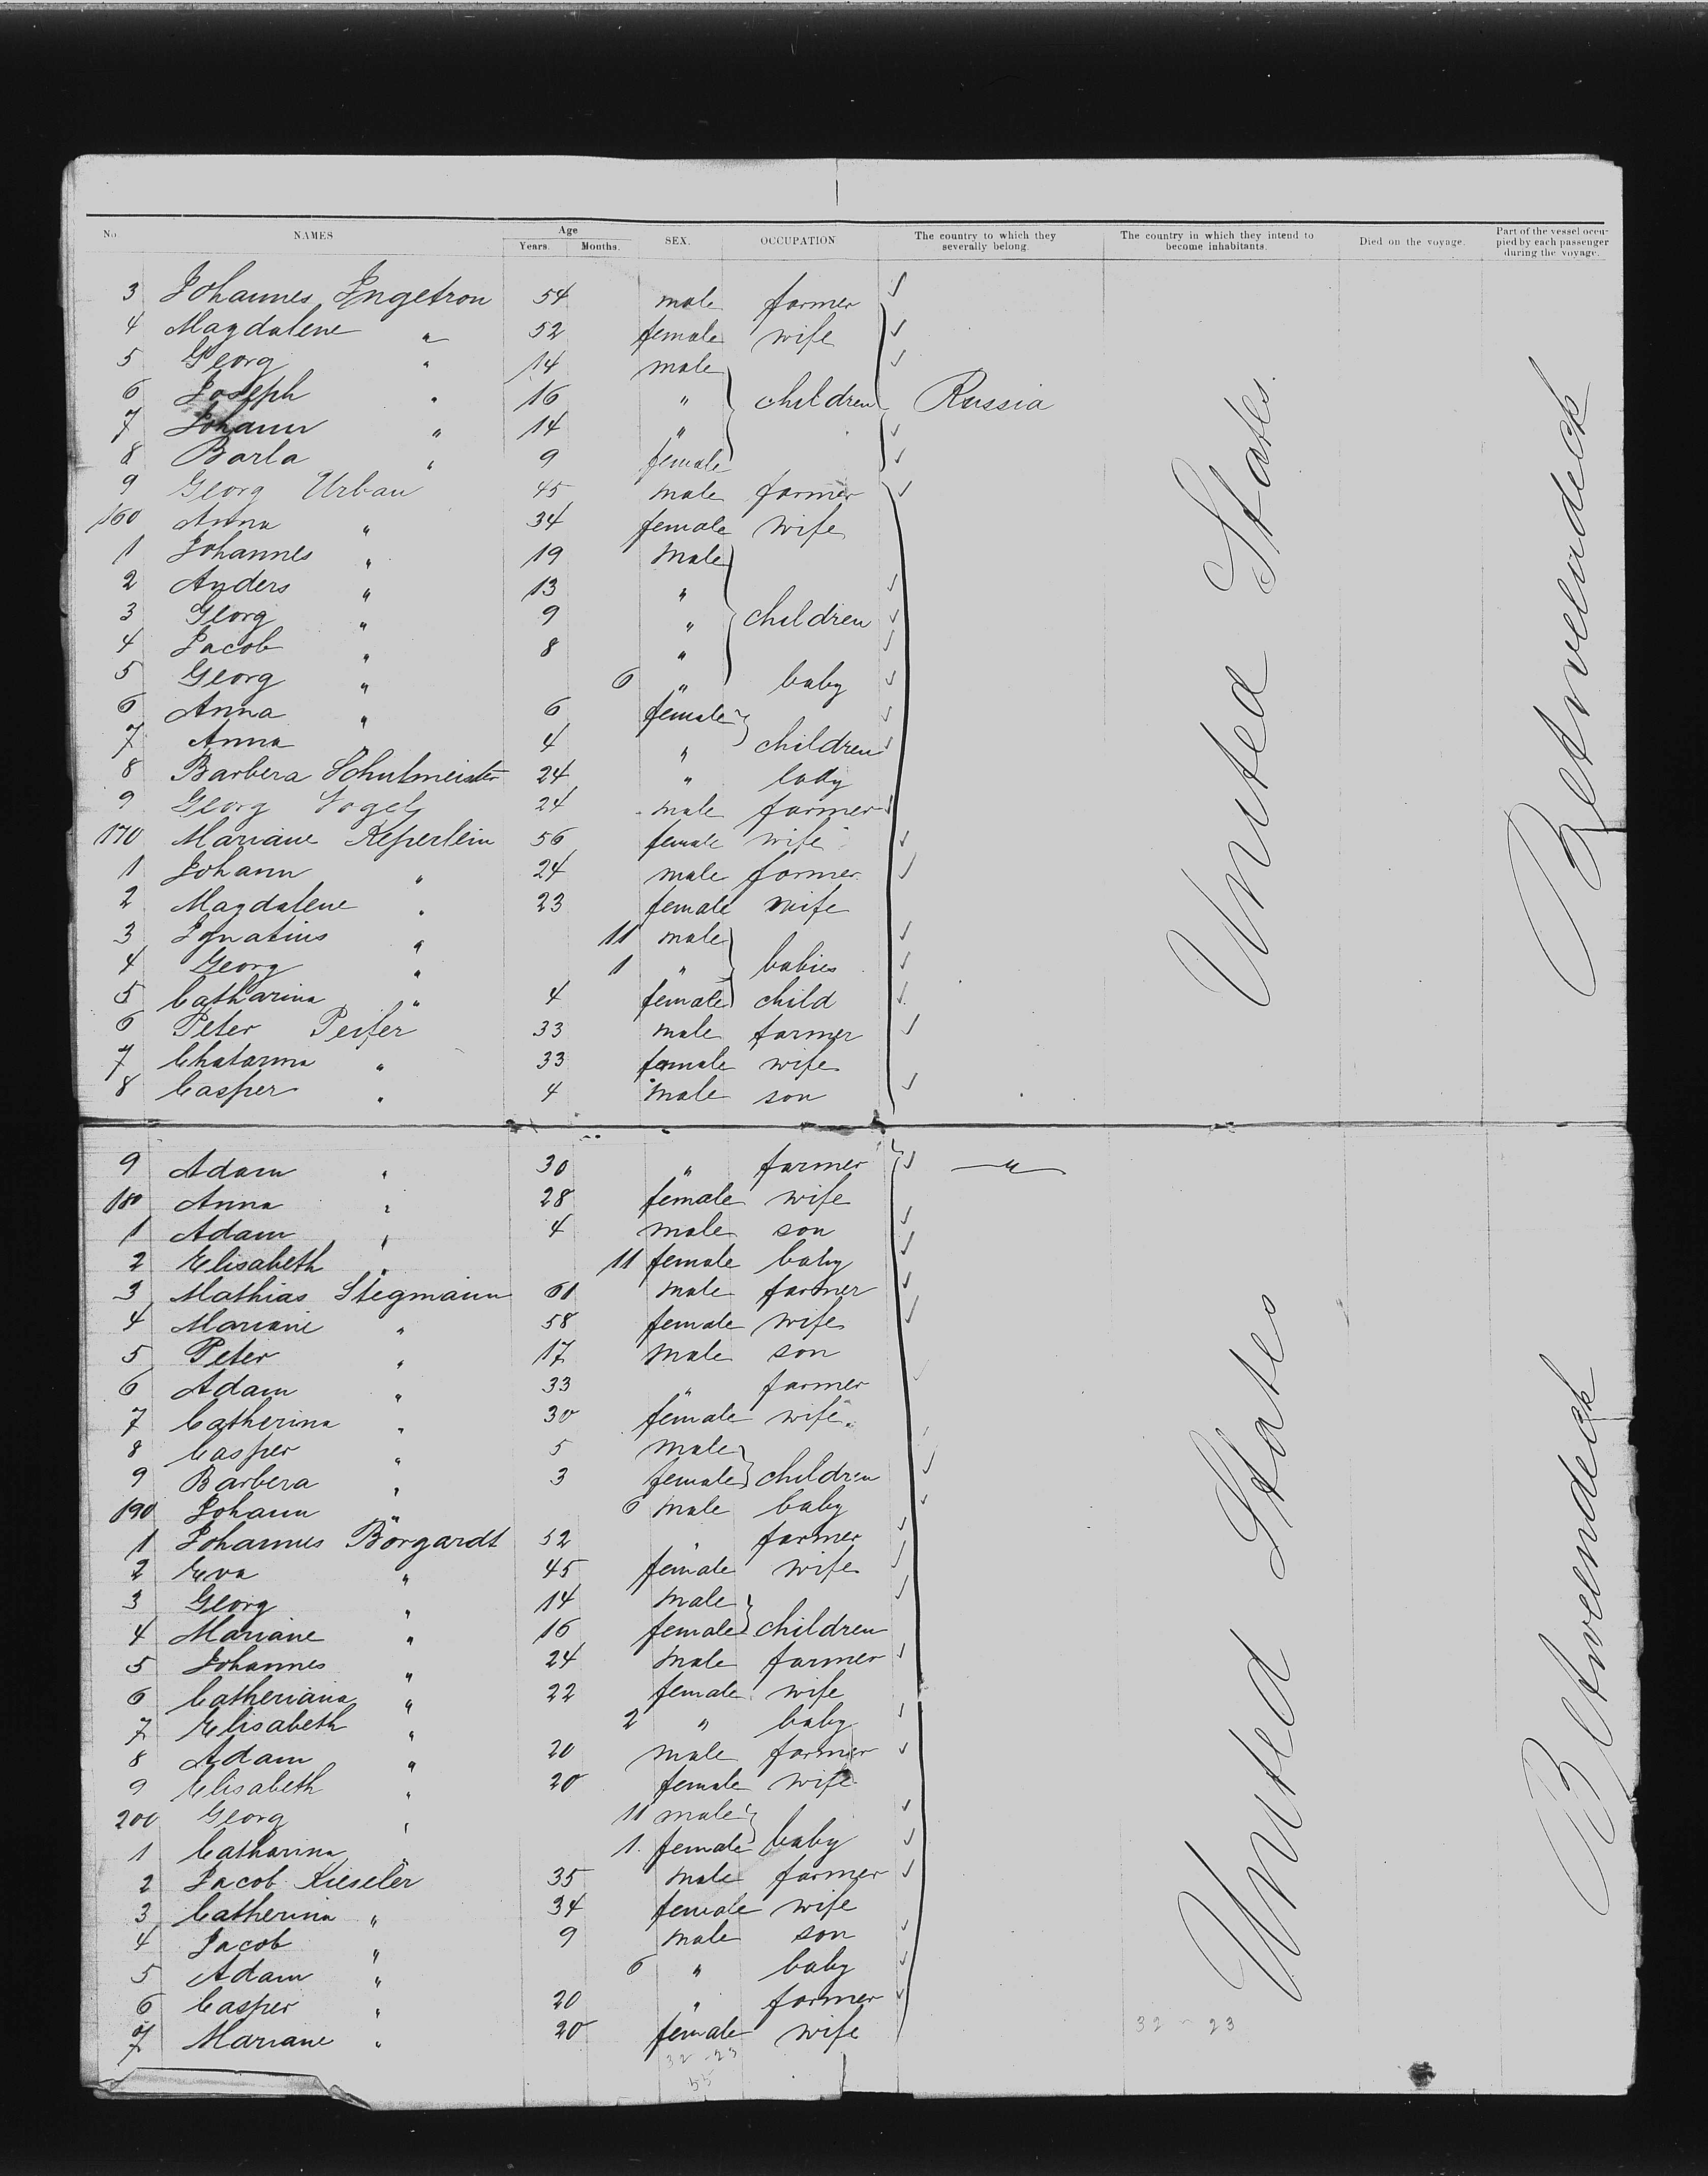 No NAMES Age Years. Months. SEX. OCCUPATION The country to which they severally belong. The country in which they intend to become inhabitants. Died on the voyage. Part of the vessel occupied by each passenger during the voyage.
3 Johannes Ingetron 54 male farmer
4 Magdalene " 52 female wife
5 Georg " 14 male
6 Joseph " 16 " children Russia
7 Johann " 14 "
8 Barla " 9 female
9 Georg Urban 45 male farmer
160 Anna " 34 female wife
1 Johannes " 19 male
2 Anders " 13 "
3 Georg " 9 " children
4 Jacob " 8 "
5 Georg " 6 " baby
6 Anna " 6 female
7 Anna " 4 " children
8 Barbera Schulmeister 24 " lady
9 Georg Vogely 24 male farmer
170 Mariane Keperlein 56 female wife
1 Johann " 24 male farmer
2 Magdalene " 23 female wife
3 Ignatius " 11 male
4 Georg " 1 " babies
5 Catharina " 4 female child
6 Peter Peifer 33 male farmer
7 Chatarina " 33 female wife
8 Casper " 4 male son
United States
Betweendeck
9 Adam " 30 " farmer "
180 Anna " 28 female wife
1 Adam " 4 male son
2 Elisabeth " 11 female baby
3 Mathias Stegmann 61 male farmer
4 Mariane " 58 female wife
5 Peter " 17 male son
6 Adam " 33 " farmer
7 Catherina " 30 female wife
8 Casper " 5 male
9 Barbera " 3 female children
190 Johann " 6 male baby
1 Johannes Borgardt 52 " farmer
2 Eva " 45 female wife
3 Georg " 14 male
4 Mariane " 16 female children
5 Johannes " 24 male farmer
6 Catheriana " 22 female wife
7 Elisabeth " 2 " baby
8 Adam " 20 male farmer
9 Elisabeth " 20 female wife
200 Georg " 11 male
1 Catharina " 1 female baby
2 Jacob Kieseler 35 male farmer
3 Catherina " 34 female wife
4 Jacob " 9 male son
5 Adam " 6 " baby
6 Casper " 20 " farmer
7 Mariane " 20 female wife
United States
Betweendeck
32 - 23
32 - 23
55